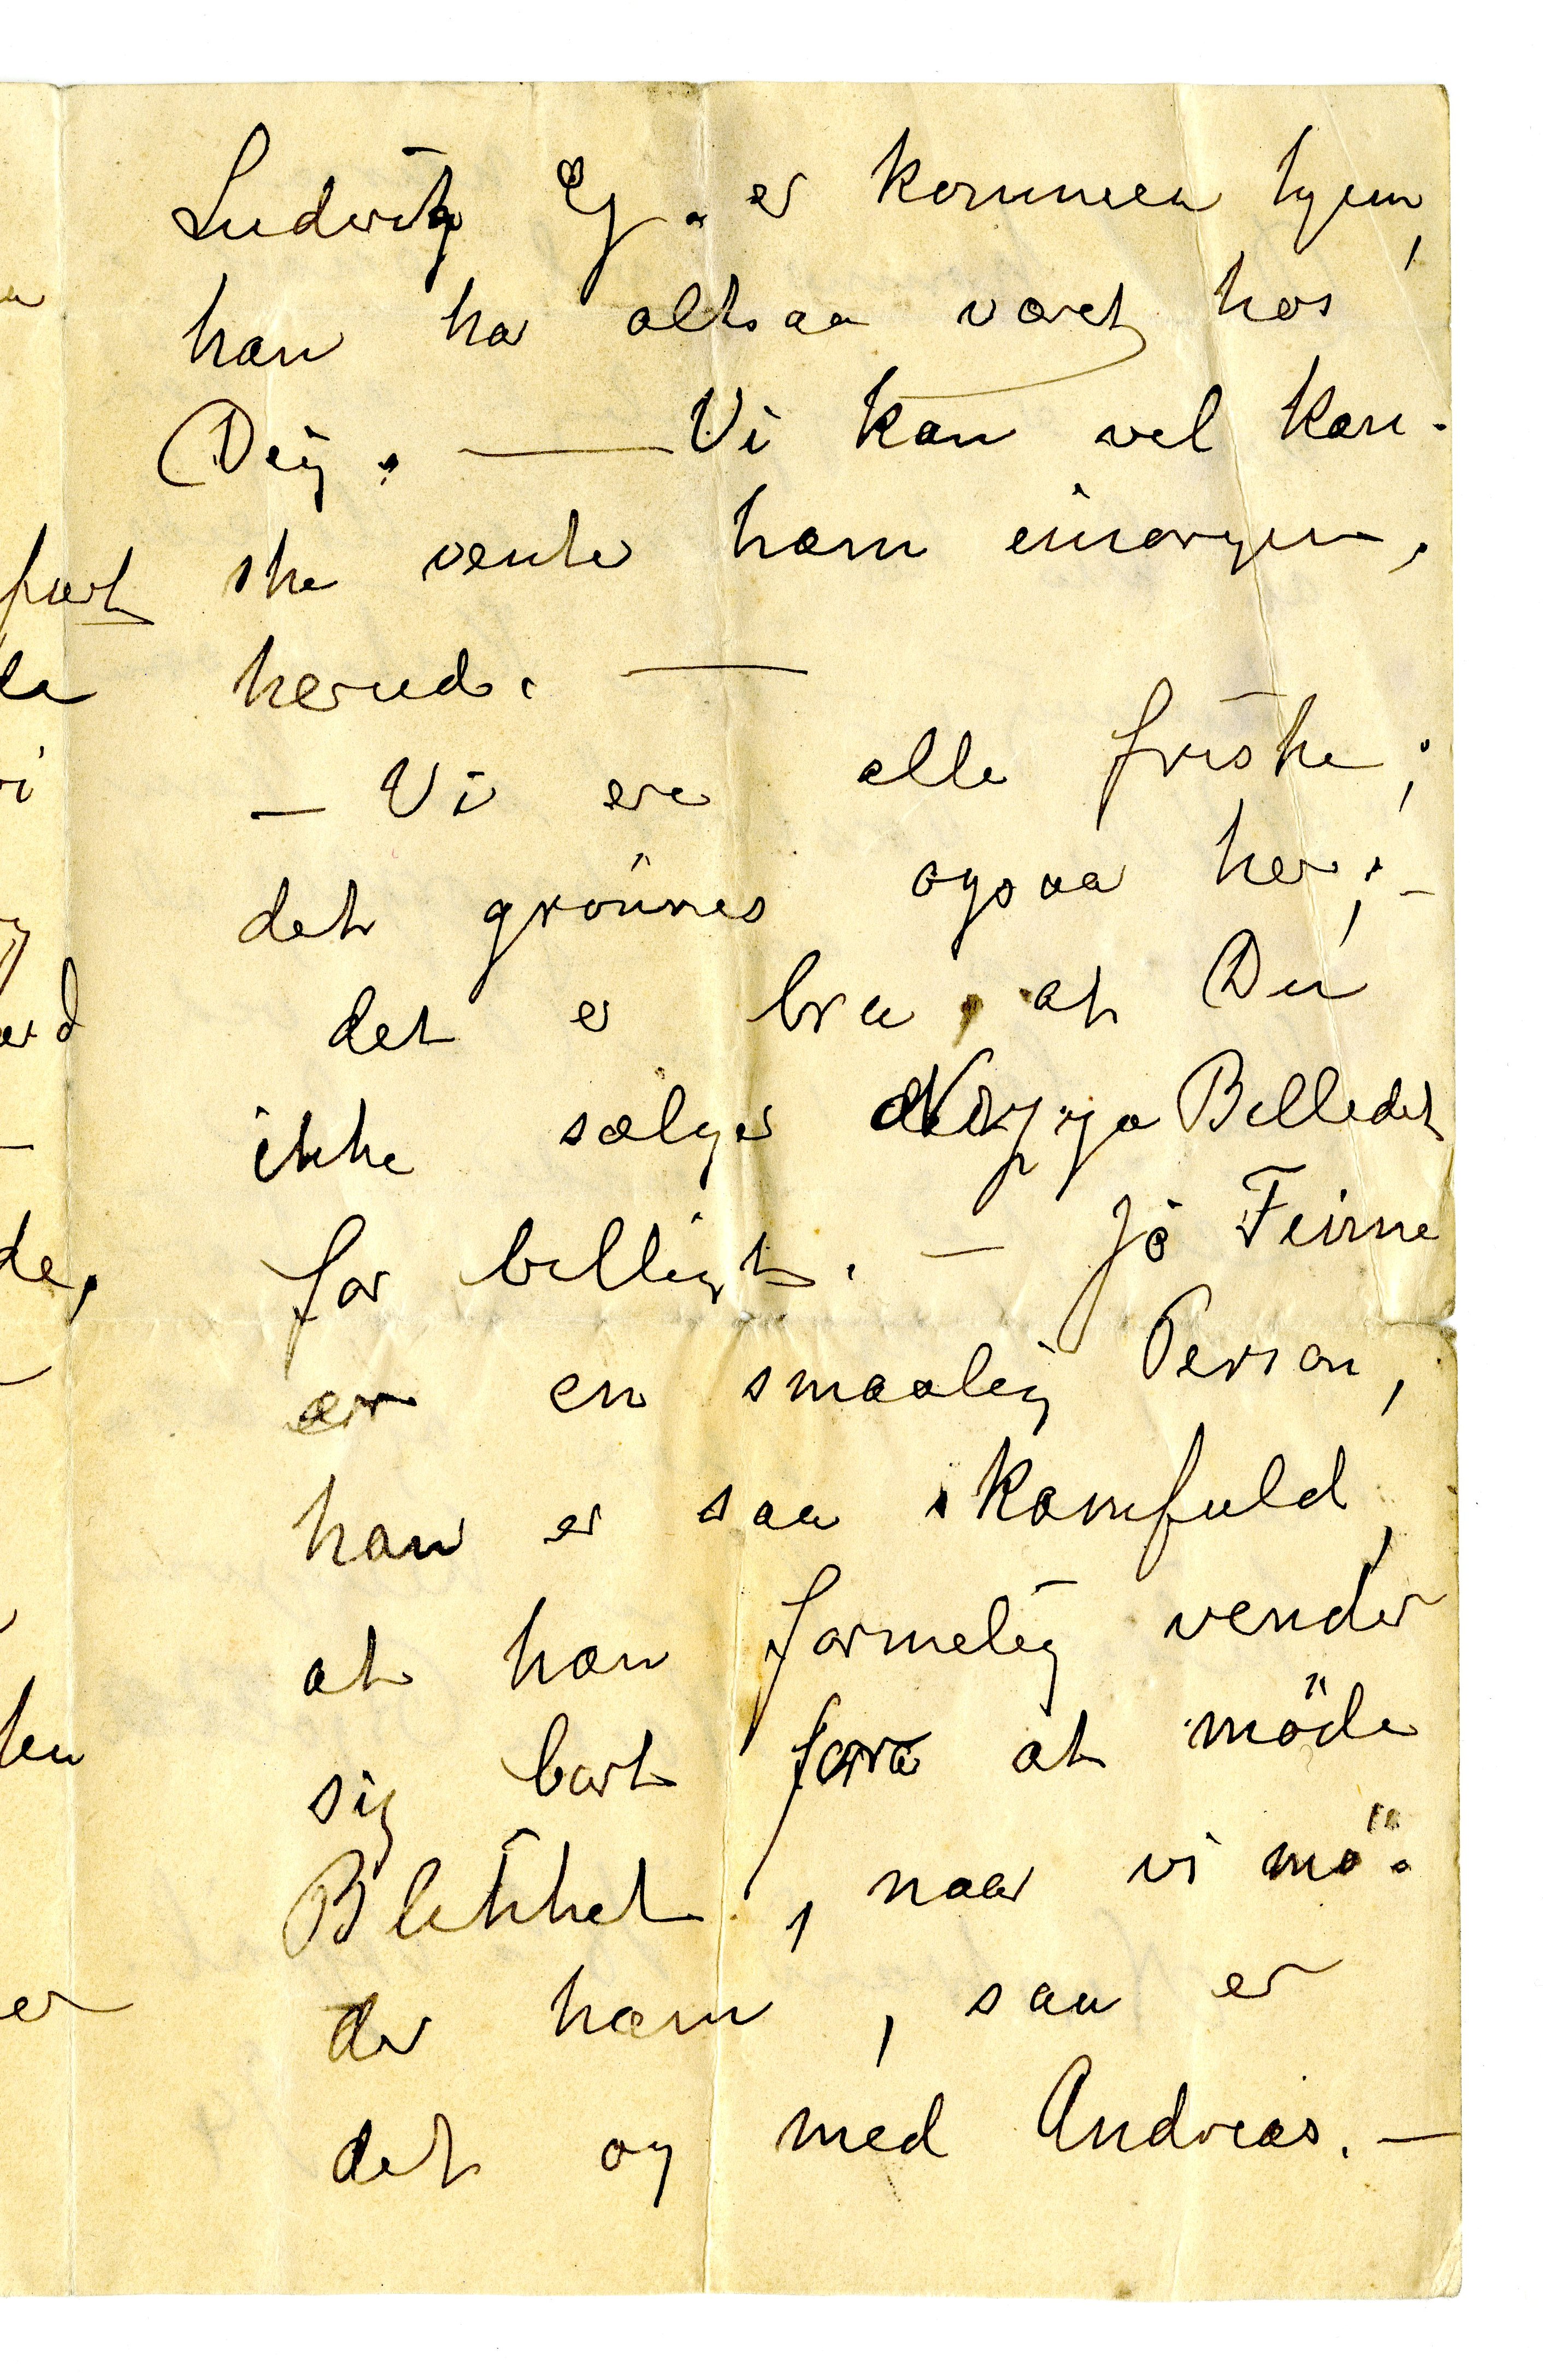 Ludvig Ej. er kommen hjem,
han ha altsaa været hos
Dig. — Vi kan vel kan-
ske vente ham imorgen,
herud. —
— Vi ere alle friske;
det grönnes ogsaa her; –
det er bra, at Du
ikke sælger Billedet
for billigt. — Jo Feirne
er en smaalig Person,
han er saa skamfuld,
at han formelig vender
sig bort for at möde
Blikket, naar vi mö-
der ham, saa er
det og med Andreas. —